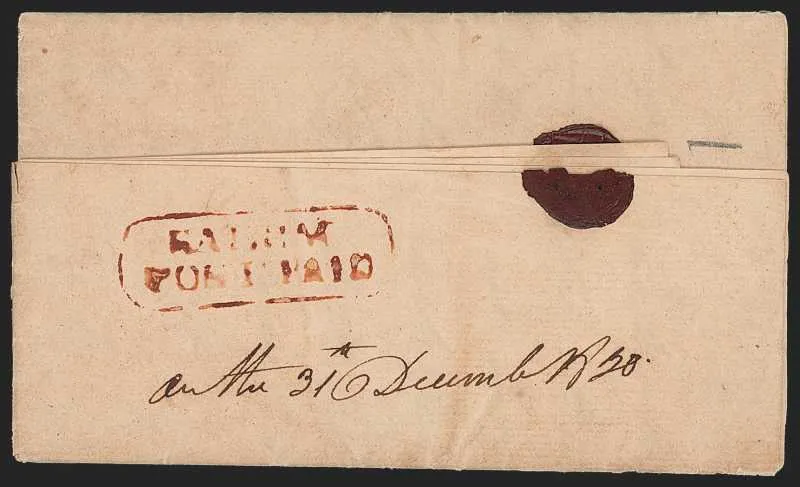 SALEM
POST PAID
on the 31th Decemb 1830.